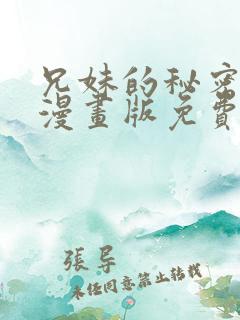 兄妹的秘密
漫畫版免費
張导
未任同意禁止转载